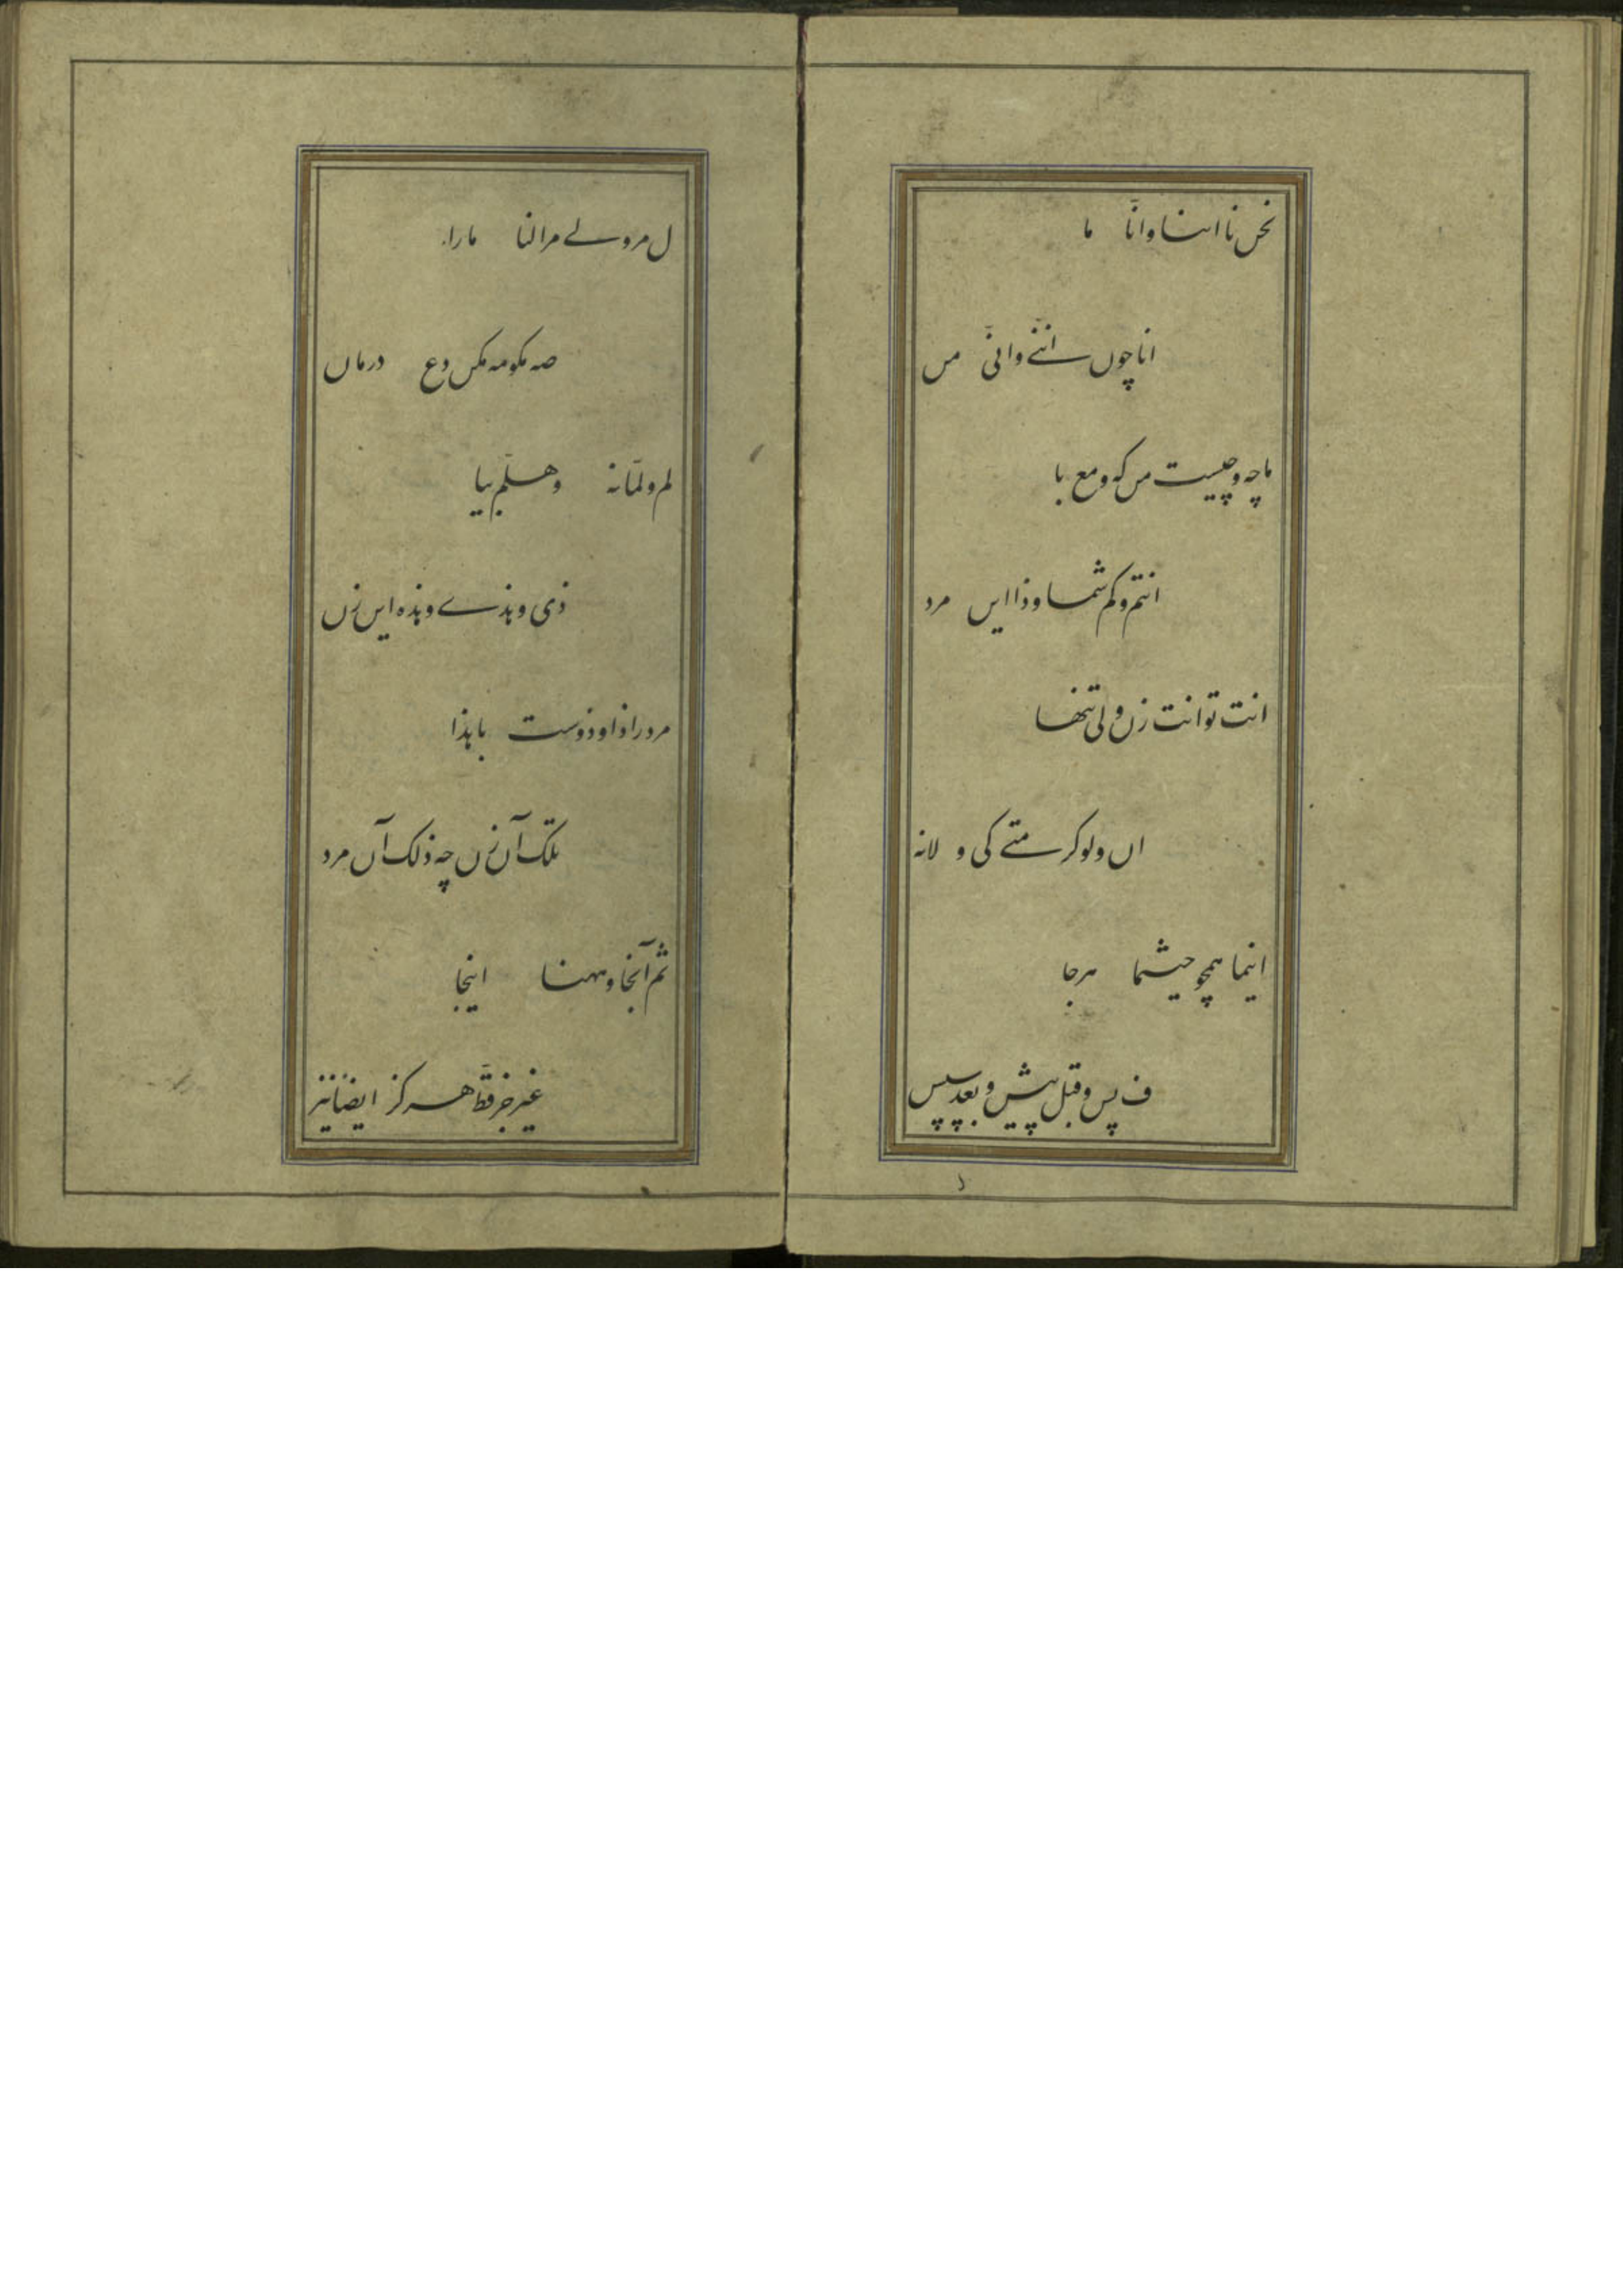 نحں نا اننا وانّا ما
انا چوں اننے وانّی مں
ما چه و چیست مں که و مع با
انتم و کم شما و ذا ایں مرد
انت تو انت زں ولی تنها
اں و لو کر متے کی و لا نه
اینما همچو حیثما هرجا
ف پس و قبل پیش و بعد سپس
ل مر و لے مرا لنا مارا
صه مکو مه مکں وع درماں
لم و لمّا نه و هلّم بیا
ذی و هذے و هذه ایں زں
مرد را ذا و ذوست با هذا
تلک آں زں چه ذلک آں مرد
ثم آنجا و ههنا اینجا
غیر جز قطّ هرکز ایضاً نیز